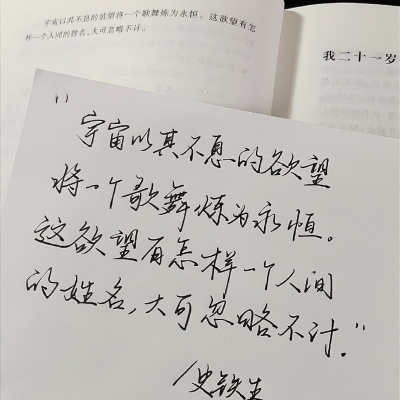 宇宙以其不息的欲望将一个歌舞炼为永恒。这欲望有怎
样一个人间的姓名,大可忽略不计。
我二十一岁
"宇宙以其不息的欲望
将一个歌舞炼为永恒。
这欲望有怎样一个人间
的姓名,大可忽略不计。"
史铁生